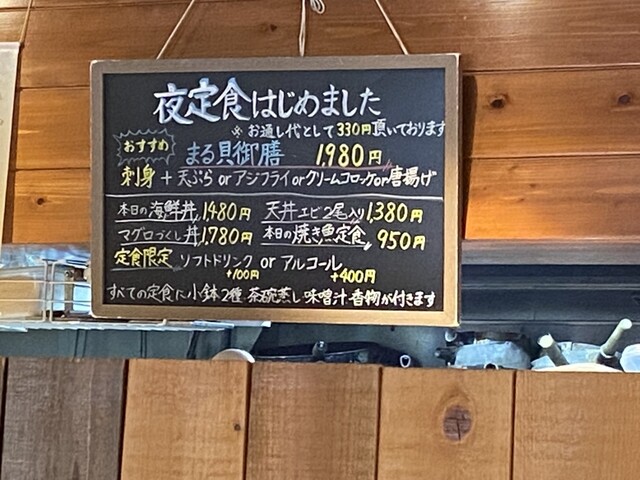 夜定食はじめました
※ お通し代として330円頂いております
おすすめ
まる貝御膳 1,980円
刺身 + 天ぷら or アジフライ or クリームコロッケ or 唐揚げ
本日の海鮮丼 1,480円 天丼エビ2尾入り 1,380円
マグロづくし丼 1,780円 本日の焼き魚定食 950円
定食限定 ソフトドリンク or アルコール
+100円 +400円
すべての定食に小鉢2種.茶碗蒸し.味噌汁.香物が付きます